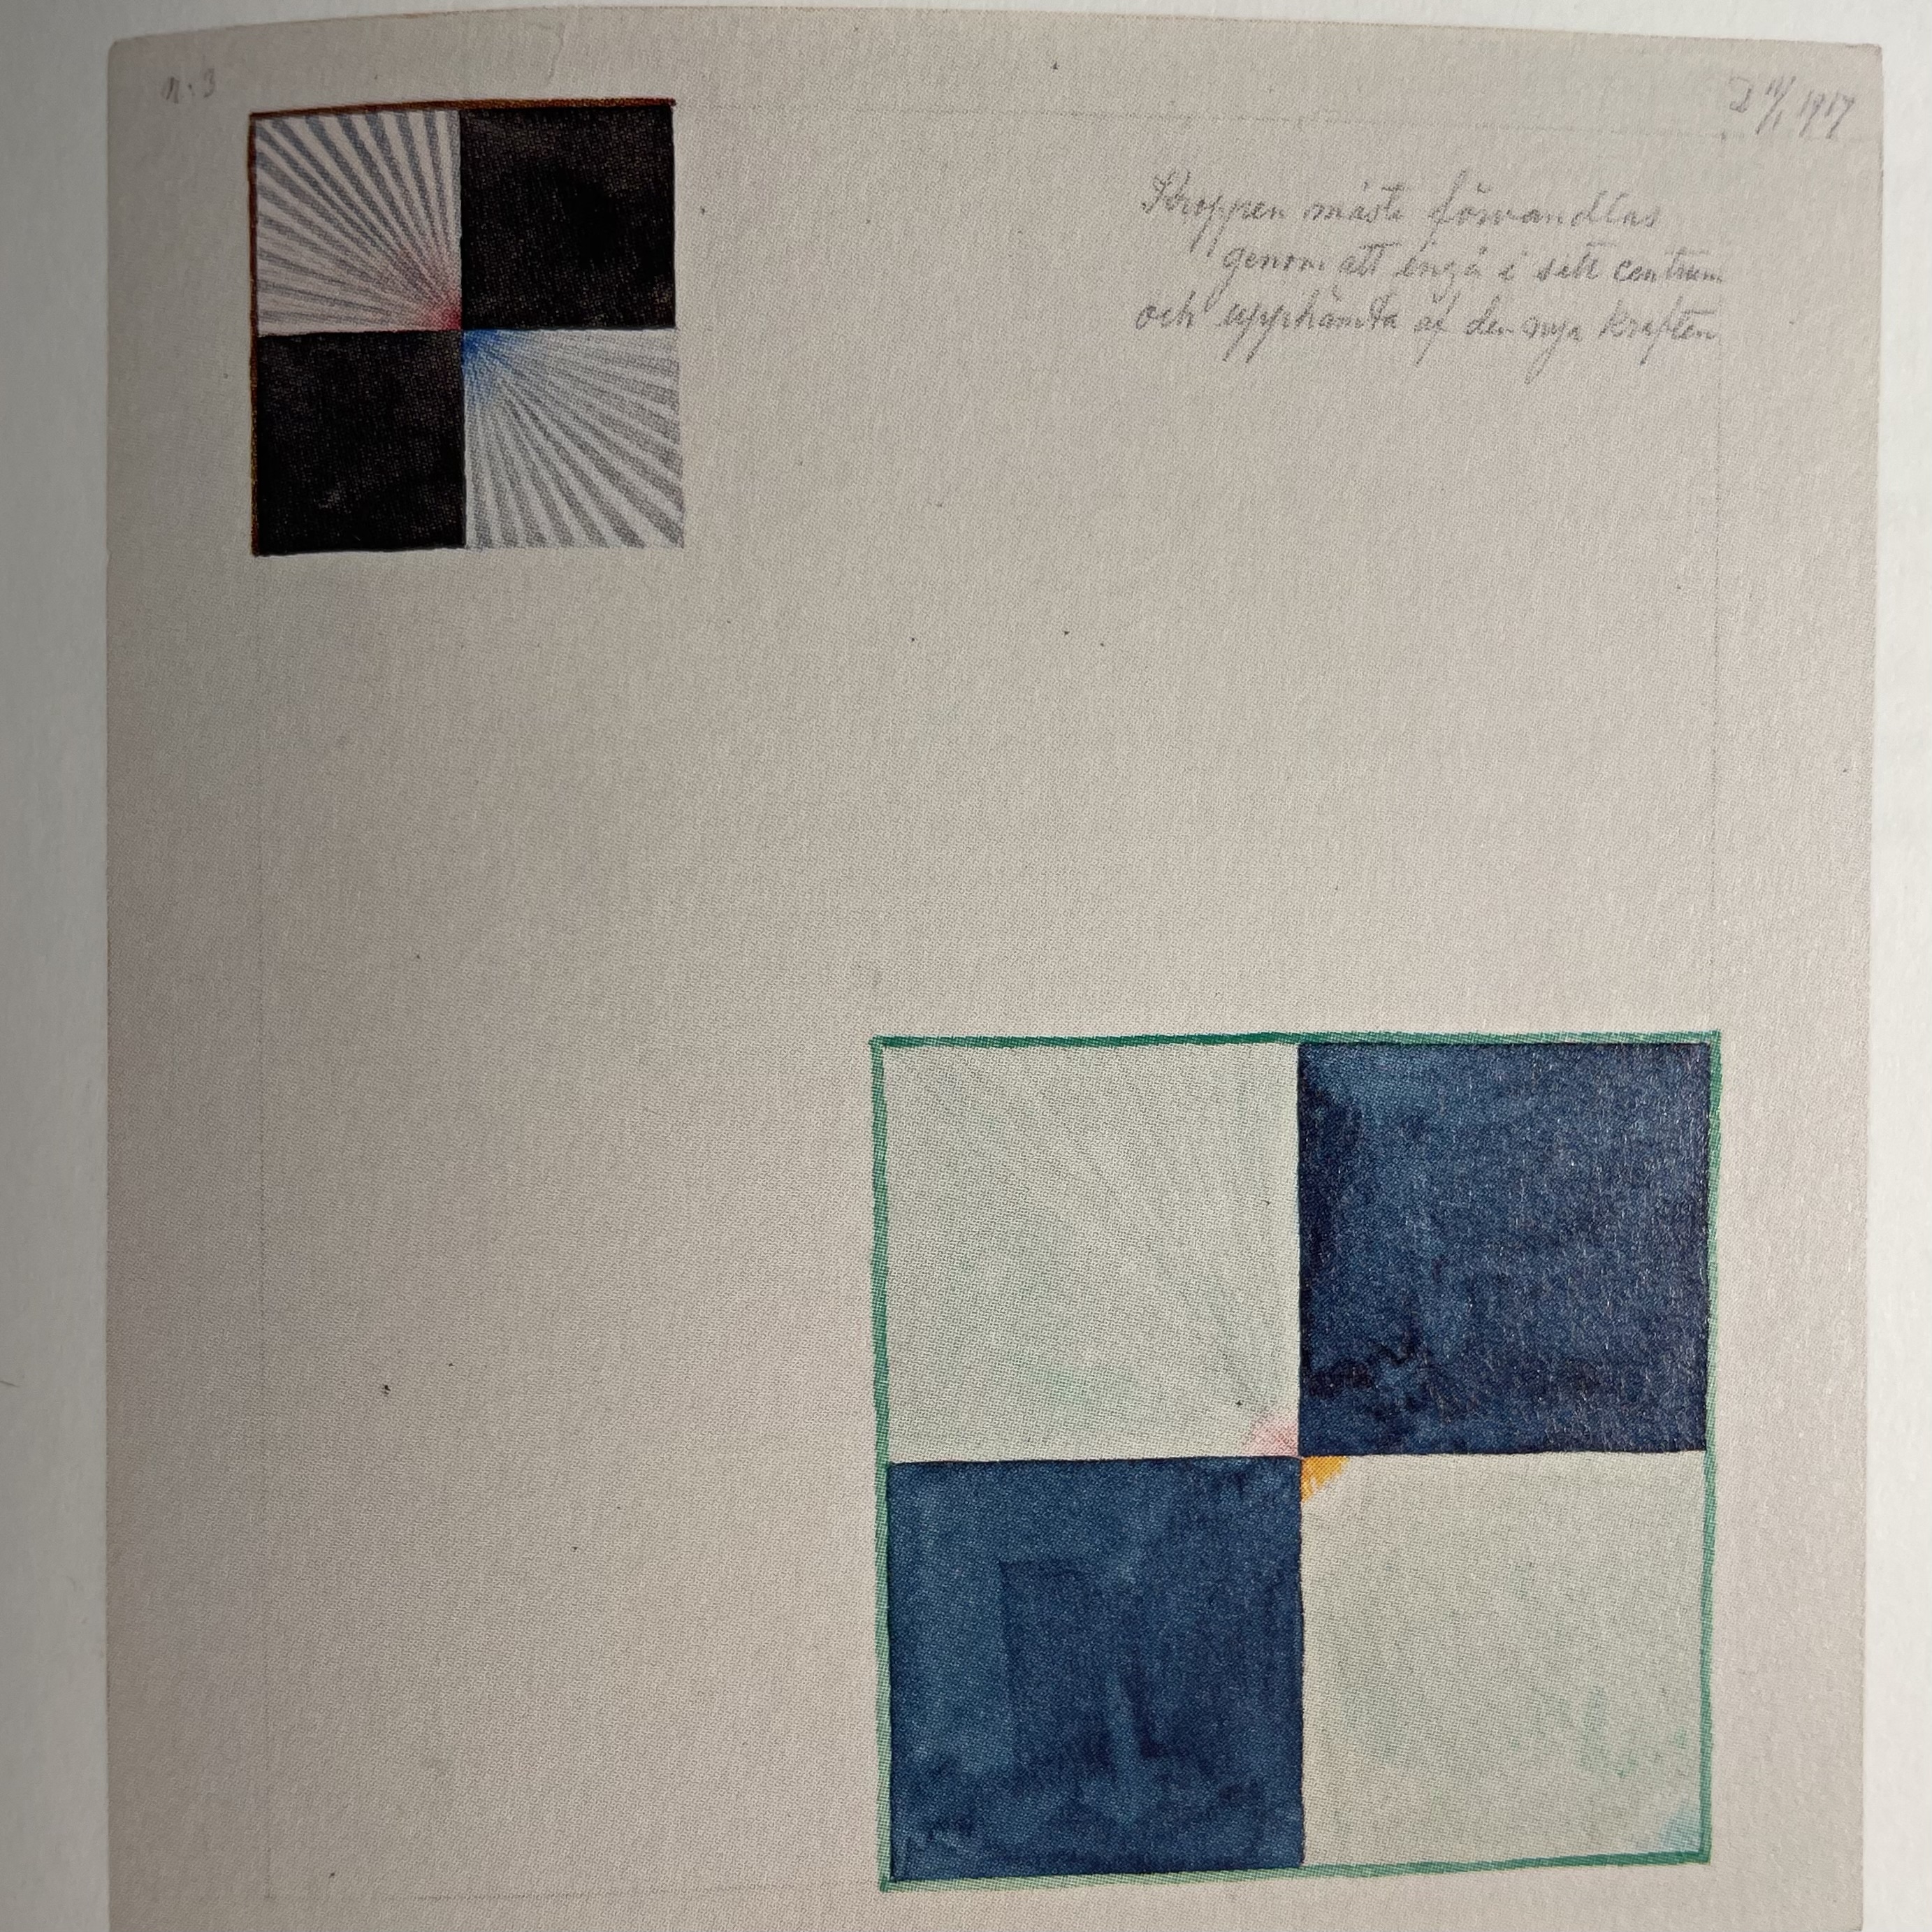 n. 3
1917
Kroppen måste förvandlas
genom att ingå i sitt centrum
och upphämta af den nya kraften